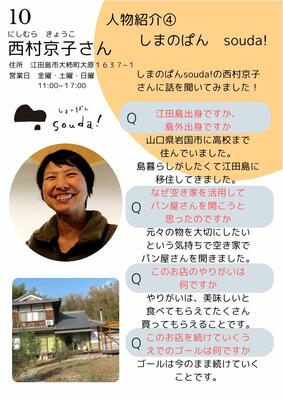 10
人物紹介④
にしむら きょうこ
西村京子さん
しまのぱん souda!
住所 江田島市大柿町大原1637−1
営業日 金曜・土曜・日曜
11:00~17:00
しまのぱんsouda!の西村京子
さんに話を聞いてみました！
しまのぱん
souda!
Q
江田島出身ですか、
島外出身ですか
山口県岩国市に高校まで
住んでいました。
島暮らしがしたくて江田島に
移住してきました。
Q
なぜ空き家を活用して
パン屋さんを開こうと
思ったのですか
元々の物を大切にしたい
という気持ちで空き家で
パン屋さんを開きました。
Q
このお店のやりがいは
何ですか
やりがいは、美味しいと
食べてもらえてたくさん
買ってもらえることです。
Q
このお店を続けていくう
えでのゴールは何ですか
ゴールは今のまま続けていく
ことです。